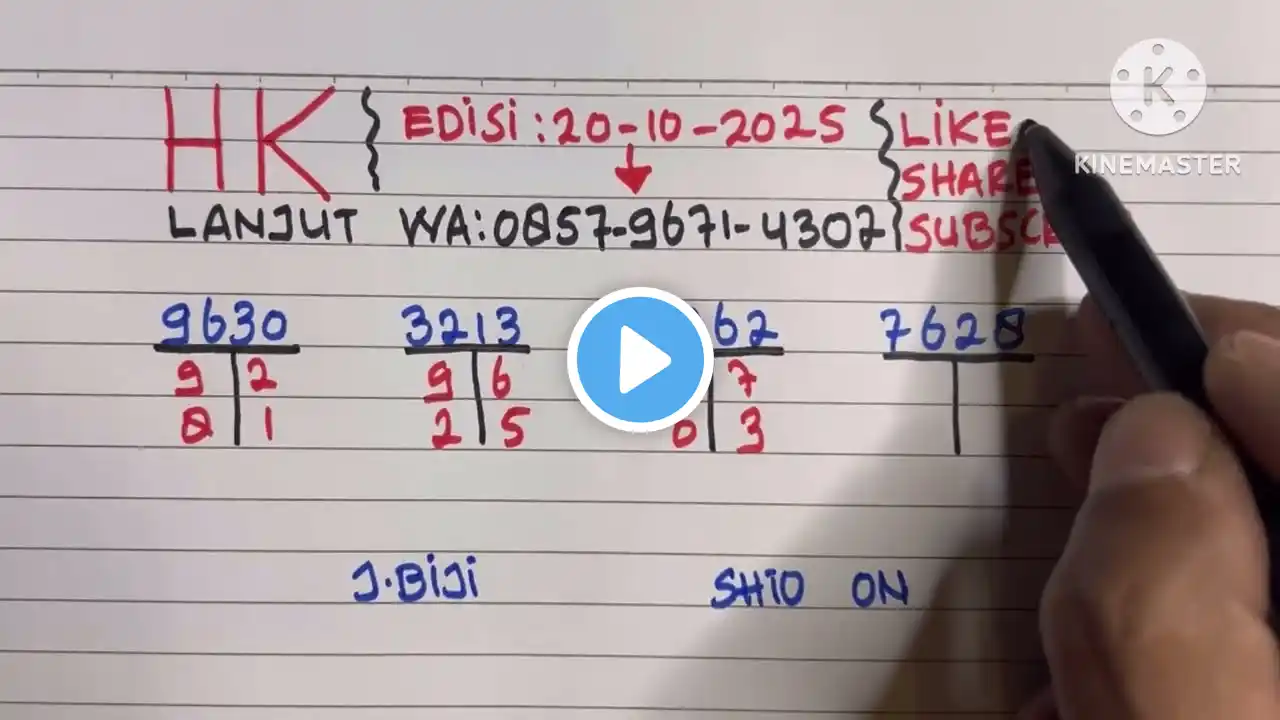 HK EDISI : 20-10-2025 LIKE
SHARE
LANJUT WA:0857-9671-4302
KINEMASTER
9630 3213 62 7628
9 2 9 6 7
8 1 2 5 0 3
J.BIJI SHIO ON